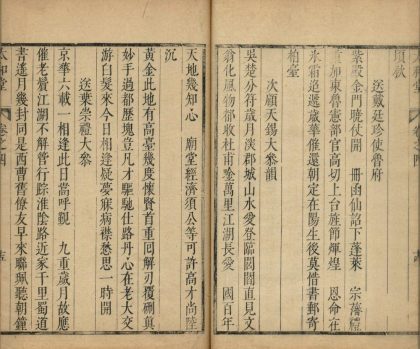 送戴廷珍使魯府
紫殿金門曉仗開　冊函仙詔下蓬萊　宗藩禮
重加東魯憲部官高切上台旌節輝煌　恩命在
氷霜迢遞歲華催還朝定在陽生後莫惜書郵寄
柏臺
次顧天錫大參韻
吳楚分符歲月淡郡城山水愛登臨閭閻直見文
翁化風物都收杜甫吟萬里江湖長愛　國百年
天地幾知心　廟堂經濟須公等可許高才尚陸
沉
黃金此地有高臺幾度懷賢首重囘解刃覆硎真
妙手過都歷塊豈凡才驅馳仕路丹心在老大交
游白髮來今日相逢疑夢寐病襟愁思一時開
送葉崇禮大參
京華六載一相逢此日當呼觀　九重歲月故應
催老鬢江湖不解管行踪淮陰路近家千里蜀道
書遙月幾封同是西曹舊僚友早來聯珮聽朝鐘
卷之四